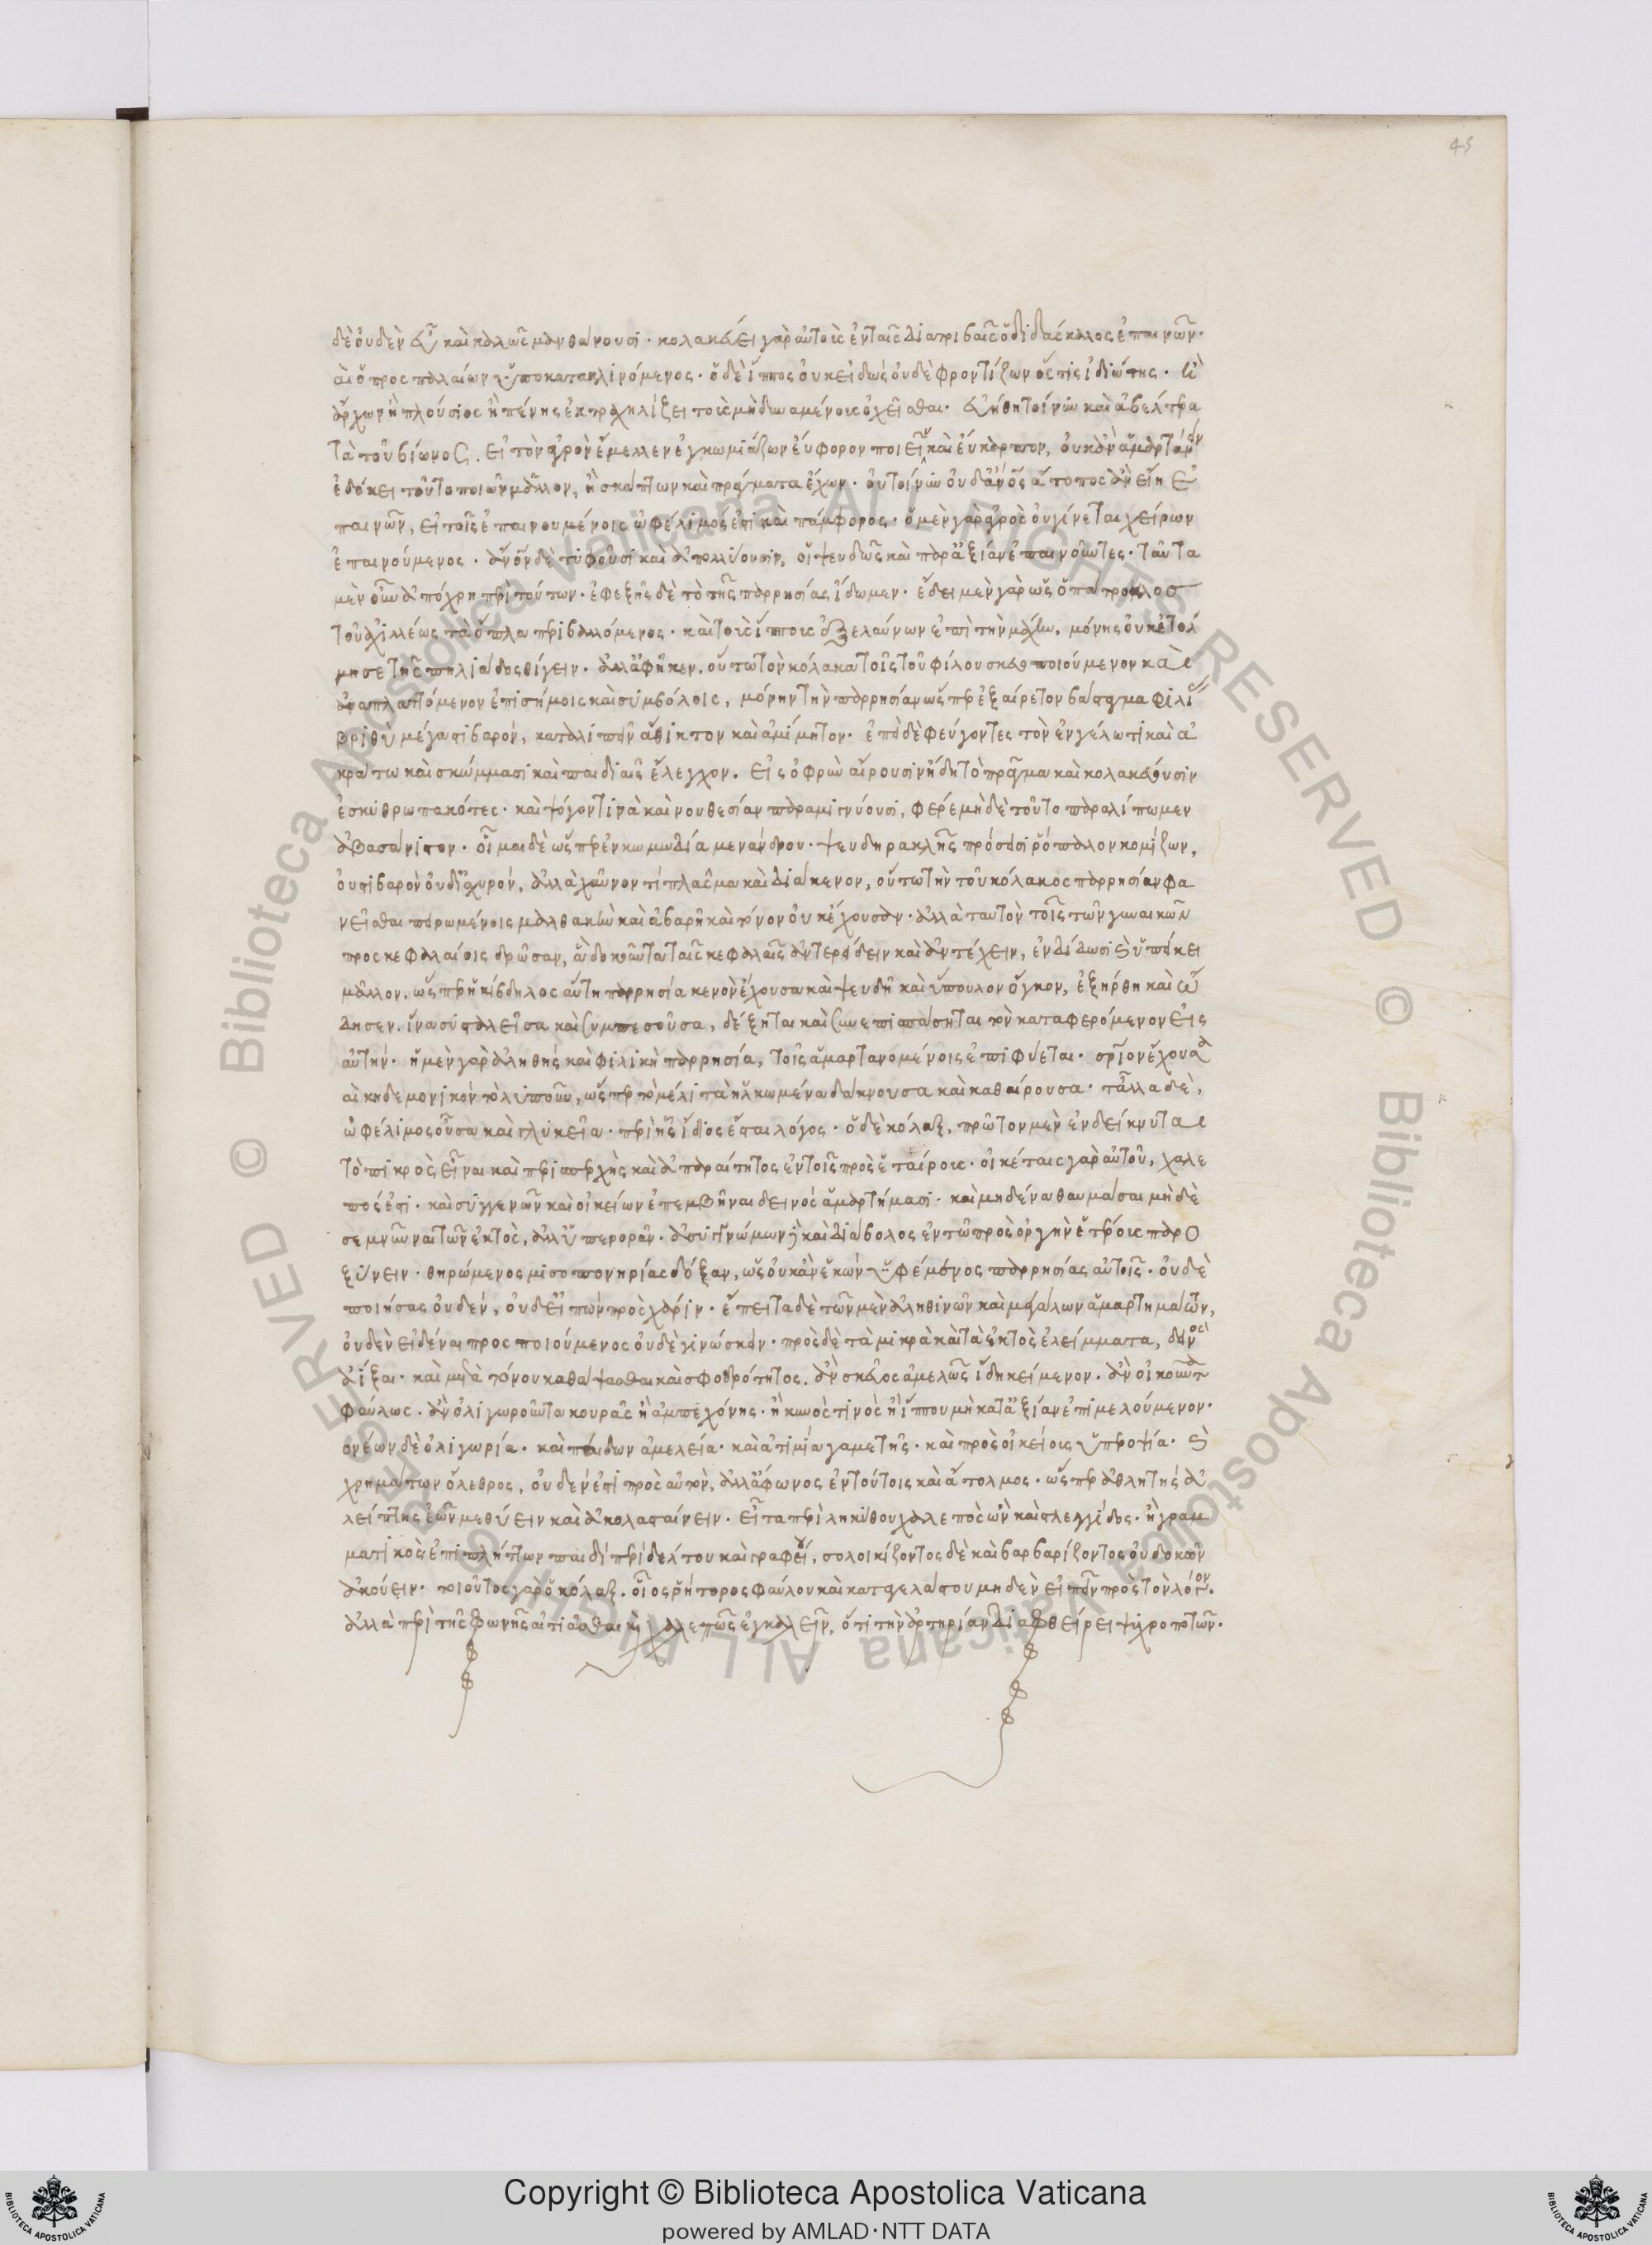 45
δὲ οὐδὲν εὖ καὶ καλῶς μανθάνουσι· κολακεύει γὰρ αὐτοὺς ἐν ταῖς διατριβαῖς ὁ διδάσκαλος ἐπαινῶν·
καὶ ὁ προσπαλαίων ὑποκατακλινόμενος· ὁ δὲ ἵππος οὐκ εἰδὼς οὐδὲ φροντίζων ὅστις ἰδιώτης· ἢ
ἄρχων ἢ πλούσιος ἢ πένης ἐκτραχηλίζει τοὺς μὴ δυναμένους ὀχεῖσθαι· εὔηθη τοίνυν καὶ ἀβέλτερα
τὰ τοῦ βίωνος. εἰ τὸν ἀγρὸν ἔμελλεν ἐγκωμιάζων εὔφορον ποιεῖν καὶ εὔκαρπον, οὐκ ἂν ἁμαρτάνειν
ἐδόκει τοῦτο ποιῶν μᾶλλον, ἢ σκάπτων καὶ πράγματα ἔχων· οὐ τοίνυν οὐδ' ἄνος ἄτοπος ἂν εἴη ἐ
παινῶν, εἰ τοῖς ἐπαινουμένοις ὠφέλιμός ἐστι καὶ πάμφορος· ὁ μὲν γὰρ ἀγρὸς οὐ γίνεται χείρων
ἐπαινούμενος· ἄνον δὲ τυφοῦσι καὶ ἀπολλύουσιν, οἱ ψευδῶς καὶ παρ' ἀξίαν ἐπαινοῦντες· ταῦτα
μὲν οὖν ἀπόχρη περὶ τούτων· ἐφεξῆς δὲ τὸ τῆς παρρησίας ἴδωμεν· ἔδει μὲν γὰρ ὡς ὁ πάτροκλος
τοῦ ἀχιλλέως τὰ ὅπλα περιβαλλόμενος· καὶ τοὺς ἵππους ἐξελαύνων ἐπὶ τὴν μάχην, μόνης οὐκ ἐτόλ
μησε τῆς πηλιάδος θίγειν· ἀλλ' ἀφῆκεν. οὕτω τὸν κόλακα τοῖς τοῦ φίλου σκευοποιούμενον καὶ
ἀναπλαττόμενον ἐπισήμοις καὶ συμβόλοις, μόνην τὴν παρρησίαν ὥσπερ ἐξαίρετον βάσταγμα φιλίας
βριθὺ μέγα στιβαρόν, καταλιπεῖν ἄθικτον καὶ ἀμίμητον· ἐπεὶ δὲ φεύγοντες τὸν ἐν γέλωτι καὶ ἀ
κράτω καὶ σκώμμασι καὶ παιδιαῖς ἔλεγχον. εἰς ὀφρῦν αἴρουσιν ἤδη τὸ πρᾶγμα καὶ κολακεύουσιν
ἐσκυθρωπακότες· καὶ ψόγον τινὰ καὶ νουθεσίαν παραμιγνύουσι, φέρε μὴδὲ τοῦτο παραλίπωμεν
ἀβασάνιστον· οἶμαι δὲ ὥσπερ ἐν κωμωδία μενάνδρου· ψευδηρακλῆς πρόσεισι ῥόπαλον κομίζων,
οὐ στιβαρὸν οὐδ' ἰσχυρόν, ἀλλὰ χαῦνόν τι πλάσμα καὶ διάκενον, οὕτω τὴν τοῦ κόλακος παρρησίαν φα
νεῖσθαι πειρωμένοις μαλθακὴν καὶ ἀβαρῆ καὶ τόνον οὐκ ἔχουσαν· ἀλλὰ ταυτὸν τοῖς τῶν γυναικῶν
προσκεφαλαίοις δρῶσαν, ἃ δοκοῦντα ταῖς κεφαλαῖς ἀντερείδειν καὶ ἀντέχειν, ἐνδίδωσι καὶ ὑπείκει
μᾶλλον. ὥσπερ ἡ κίβδηλος αὕτη παρρησία κενὸν ἔχουσα καὶ ψευδῆ καὶ ὕπουλον ὄγκον, ἐξήρθη καὶ ᾤ
δησεν. ἵνα συσταλεῖσα καὶ συμπεσοῦσα, δέξηται καὶ συνεπισπάσηται τὸν καταφερόμενον εἰς
αὑτήν· ἡ μὲν γὰρ ἀληθὴς καὶ φιλικὴ παρρησία, τοῖς ἁμαρτανομένοις ἐπιφύεται· σωτήριον ἔχουσα
καὶ κηδεμονικὸν τὸ λυποῦν, ὥσπερ τὸ μέλι τὰ ἡλκωμένα δάκνουσα καὶ καθαίρουσα· τἄλλα δὲ,
ὠφέλιμος οὖσα καὶ γλυκεῖα· περὶ ἧς ἴδιος ἔσται λόγος· ὁ δὲ κόλαξ, πρῶτον μὲν ἐνδείκνυται
τὸ πικρὸς εἶναι καὶ περισπερχὴς καὶ ἀπαραίτητος ἐν τοῖς πρὸς ἑταίρους· οἰκέταις γὰρ αὑτοῦ, χαλε
πός ἐστι· καὶ συγγενῶν καὶ οἰκείων ἐπεμβῆναι δεινὸς ἁμαρτήμασι· καὶ μηδένα θαυμάσαι μὴδὲ
σεμνῦναι τῶν ἐκτὸς, ἀλλ' ὑπερορᾶν· ἀσυγγνώμων καὶ διάβολος ἐν τῶ πρὸς ὀργὴν ἑτέρους παρο
ξύνειν· θηρώμενος μισοπονηρίας δόξαν, ὡς οὐκ ἂν ἑκὼν ὑφέμενος παρρησίας αὐτοῖς· οὐδὲ
ποιήσας οὐδέν, οὐδ' εἰπὼν πρὸς χάριν· ἔπειτα δὲ τῶν μὲν ἀληθινῶν καὶ μεγάλων ἁμαρτημάτων,
οὐδὲν εἰδέναι προσποιούμενος οὐδὲ γινώσκειν· πρὸς δὲ τὰ μικρὰ καὶ τὰ ἐκτὸς ἐλείμματα, δεινὸς
ἀίξαι· καὶ μετὰ τόνου καθάψασθαι καὶ σφοδρότητος. ἂν σκεῦος ἀμελῶς ἴδη κείμενον. ἂν οἰκοῦντα
φαύλως. ἂν ὀλιγωροῦντα κουρᾶς ἢ ἀμπεχόνης· ἢ κυνός τινὸς ἢ ἵππου μὴ κατ' ἀξίαν ἐπιμελούμενον·
γονέων δὲ ὀλιγωρία· καὶ παίδων ἀμελεία· καὶ ἀτιμία γαμετῆς· καὶ πρὸς οἰκείους ὑπεροψία· καὶ
χρημάτων ὄλεθρος, οὐδέν ἐστι πρὸς αὐτὸν, ἀλλ' ἄφωνος ἐν τούτοις καὶ ἄτολμος· ὥσπερ ἀθλητὴς ἀ
λείπτης ἐῶν μεθύειν καὶ ἀκολασταίνειν· εἶτα περὶ ληκύθου χαλεπὸς ὢν καὶ στλεγγίδος· ἢ γραμ
ματικὸς ἐπιπλήττων παιδὶ περὶ δέλτου καὶ γραφείου, σολοικίζοντος δὲ καὶ βαρβαρίζοντος οὐ δοκῶν
ἀκούειν· τοιοῦτος γὰρ ὁ κόλαξ. οἷος ῥήτορος φαύλου καὶ καταγελάστου μηδὲν εἰπεῖν πρὸς τὸν λόγον·
ἀλλὰ περὶ τῆς φωνῆς αἰτιᾶσθαι καὶ χαλεπῶς ἐγκαλεῖν, ὅτι τὴν ἀρτηρίαν διαφθείρει ψυχροποτῶν·
© Biblioteca Apostolica Vaticana ALL RIGHTS RESERVED
Copyright © Biblioteca Apostolica Vaticana
powered by AMLAD·NTT DATA